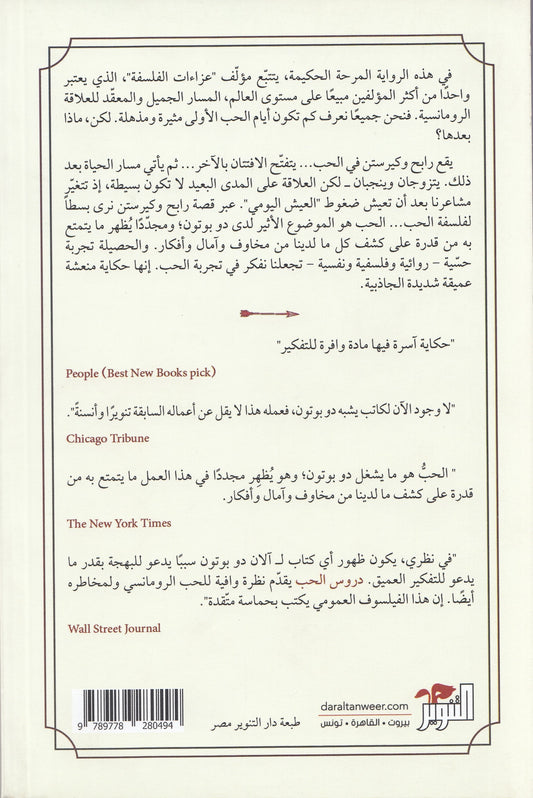 في هذه الرواية المرحة الحكيمة، يتتبّع مؤلّف "عزاءات الفلسفة"، الذي يعتبر
واحدًا من أكثر المؤلفين مبيعًا على مستوى العالم، المسار الجميل والمعقّد للعلاقة
الرومانسية. فنحن جميعًا نعرف كم تكون أيام الحب الأولى مثيرة ومذهلة. لكن، ماذا
بعدها؟
يقع رابح وكيرستن في الحب... يتفتّح الافتتان بالآخر... ثم يأتي مسار الحياة بعد
ذلك. يتزوجان وينجبان – لكن العلاقة على المدى البعيد لا تكون بسيطة، إذ تتغيّر
مشاعرنا بعد أن تعيش ضغوط "العيش اليومي". عبر قصة رابح وكيرستن نرى بسطاً
لفلسفة الحب... الحب هو الموضوع الأثير لدى دو بوتون؛ ومجدّدًا يُظهر ما يتمتع
به من قدرة على كشف كل ما لدينا من مخاوف وآمال وأفكار. والحصيلة تجربة
حسّية – روائية وفلسفية ونفسية – تجعلنا نفكر في تجربة الحب. إنها حكاية منعشة
عميقة شديدة الجاذبية.
"حكاية آسرة فيها مادة وافرة للتفكير"
People (Best New Books pick)
"لا وجود الآن لكاتب يشبه دو بوتون، فعمله هذا لا يقل عن أعماله السابقة تنويرًا وأنسنةً".
Chicago Tribune
" الحبُّ هو ما يشغل دو بوتون؛ وهو يُظهِر مجددًا في هذا العمل ما يتمتع به من
قدرة على كشف ما لدينا من مخاوف وآمال وأفكار.
The New York Times
"في نظري، يكون ظهور أي كتاب لـ آلان دو بوتون سببًا يدعو للبهجة بقدر ما
يدعو للتفكير العميق. دروس الحب يقدّم نظرة وافية للحب الرومانسي ولمخاطره
أيضًا. إن هذا الفيلسوف العمومي يكتب بحماسة متّقدة".
Wall Street Journal
التنوير
daraltanweer.com
بيروت • القاهرة • تونس
طبعة دار التنوير مصر
9 789778 280494